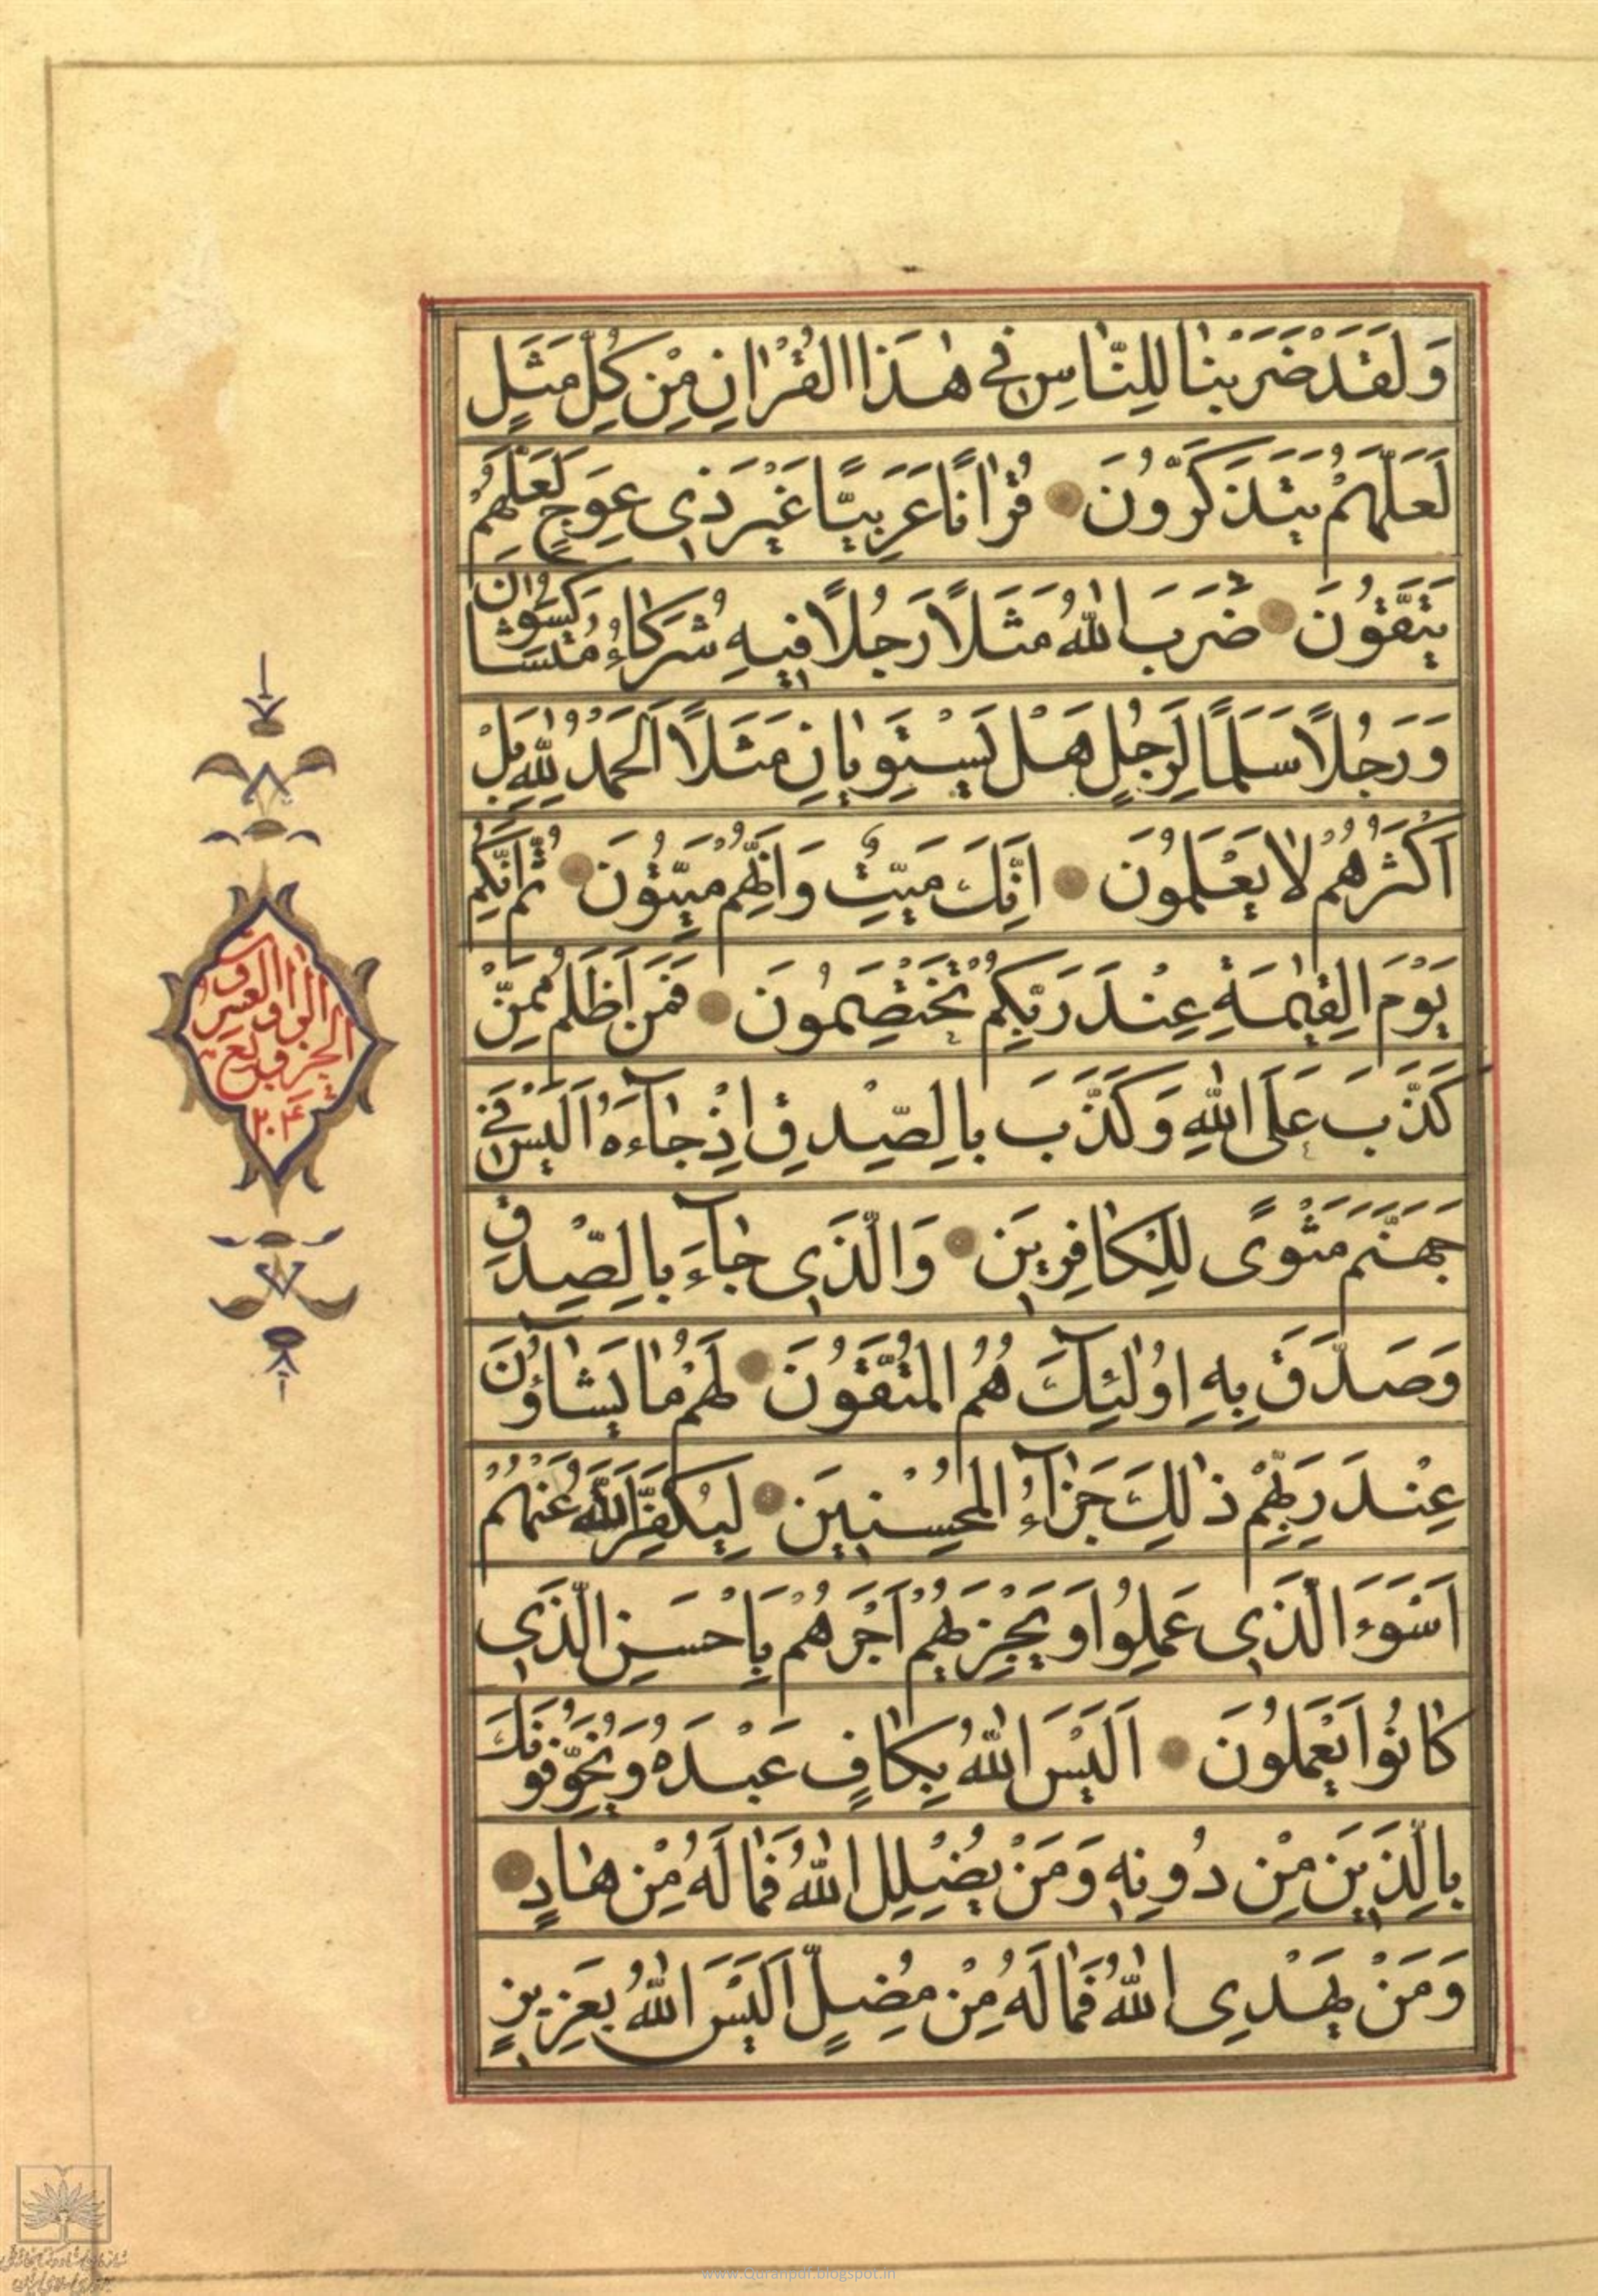 وَلَقَدْ ضَرَبْنٰا لِلنّٰاسِ فِي هٰذَا الْقُرْاٰنِ مِنْ كُلِّ مَثَلٍ
لَعَلَّهُمْ يَتَذَكَّرُونَ قُرْاٰنًا عَرَبِيًّا غَيْرَ ذِي عِوَجٍ لَعَلَّهُمْ
يَتَّقُونَ ضَرَبَ اللّٰهُ مَثَلًا رَجُلًا فِيهِ شُرَكٰاءُ مُتَشٰاكِسُونَ
وَرَجُلًا سَلَمًا لِرَجُلٍ هَلْ يَسْتَوِيٰانِ مَثَلًا اَلْحَمْدُ لِلّٰهِ بَلْ
اَكْثَرُهُمْ لٰا يَعْلَمُونَ اِنَّكَ مَيِّتٌ وَاِنَّهُمْ مَيِّتُونَ ثُمَّ اِنَّكُمْ
يَوْمَ الْقِيٰمَةِ عِنْدَ رَبِّكُمْ تَخْتَصِمُونَ فَمَنْ اَظْلَمُ مِمَّنْ
كَذَبَ عَلَى اللّٰهِ وَكَذَّبَ بِالصِّدْقِ اِذْ جٰاۤءَهُ اَلَيْسَ فِي
جَهَنَّمَ مَثْوًى لِلْكٰافِرِينَ وَالَّذِي جٰاۤءَ بِالصِّدْقِ
وَصَدَّقَ بِهِ اُولٰۤئِكَ هُمُ الْمُتَّقُونَ لَهُمْ مٰا يَشٰاۤؤُنَ
عِنْدَ رَبِّهِمْ ذٰلِكَ جَزٰاۤءُ الْمُحْسِنِينَ لِيُكَفِّرَ اللّٰهُ عَنْهُمْ
اَسْوَءَ الَّذِي عَمِلُوا وَيَجْزِيَهُمْ اَجْرَهُمْ بِاَحْسَنِ الَّذِي
كٰانُوا يَعْمَلُونَ اَلَيْسَ اللّٰهُ بِكٰافٍ عَبْدَهُ وَيُخَوِّفُونَكَ
بِالَّذِينَ مِنْ دُونِهِ وَمَنْ يُضْلِلِ اللّٰهُ فَمٰا لَهُ مِنْ هٰادٍ
وَمَنْ يَهْدِي اللّٰهُ فَمٰا لَهُ مِنْ مُضِلٍّ اَلَيْسَ اللّٰهُ بِعَزِيزٍ
الجزو
٢٠٤
www.Quranpdf.blogspot.in